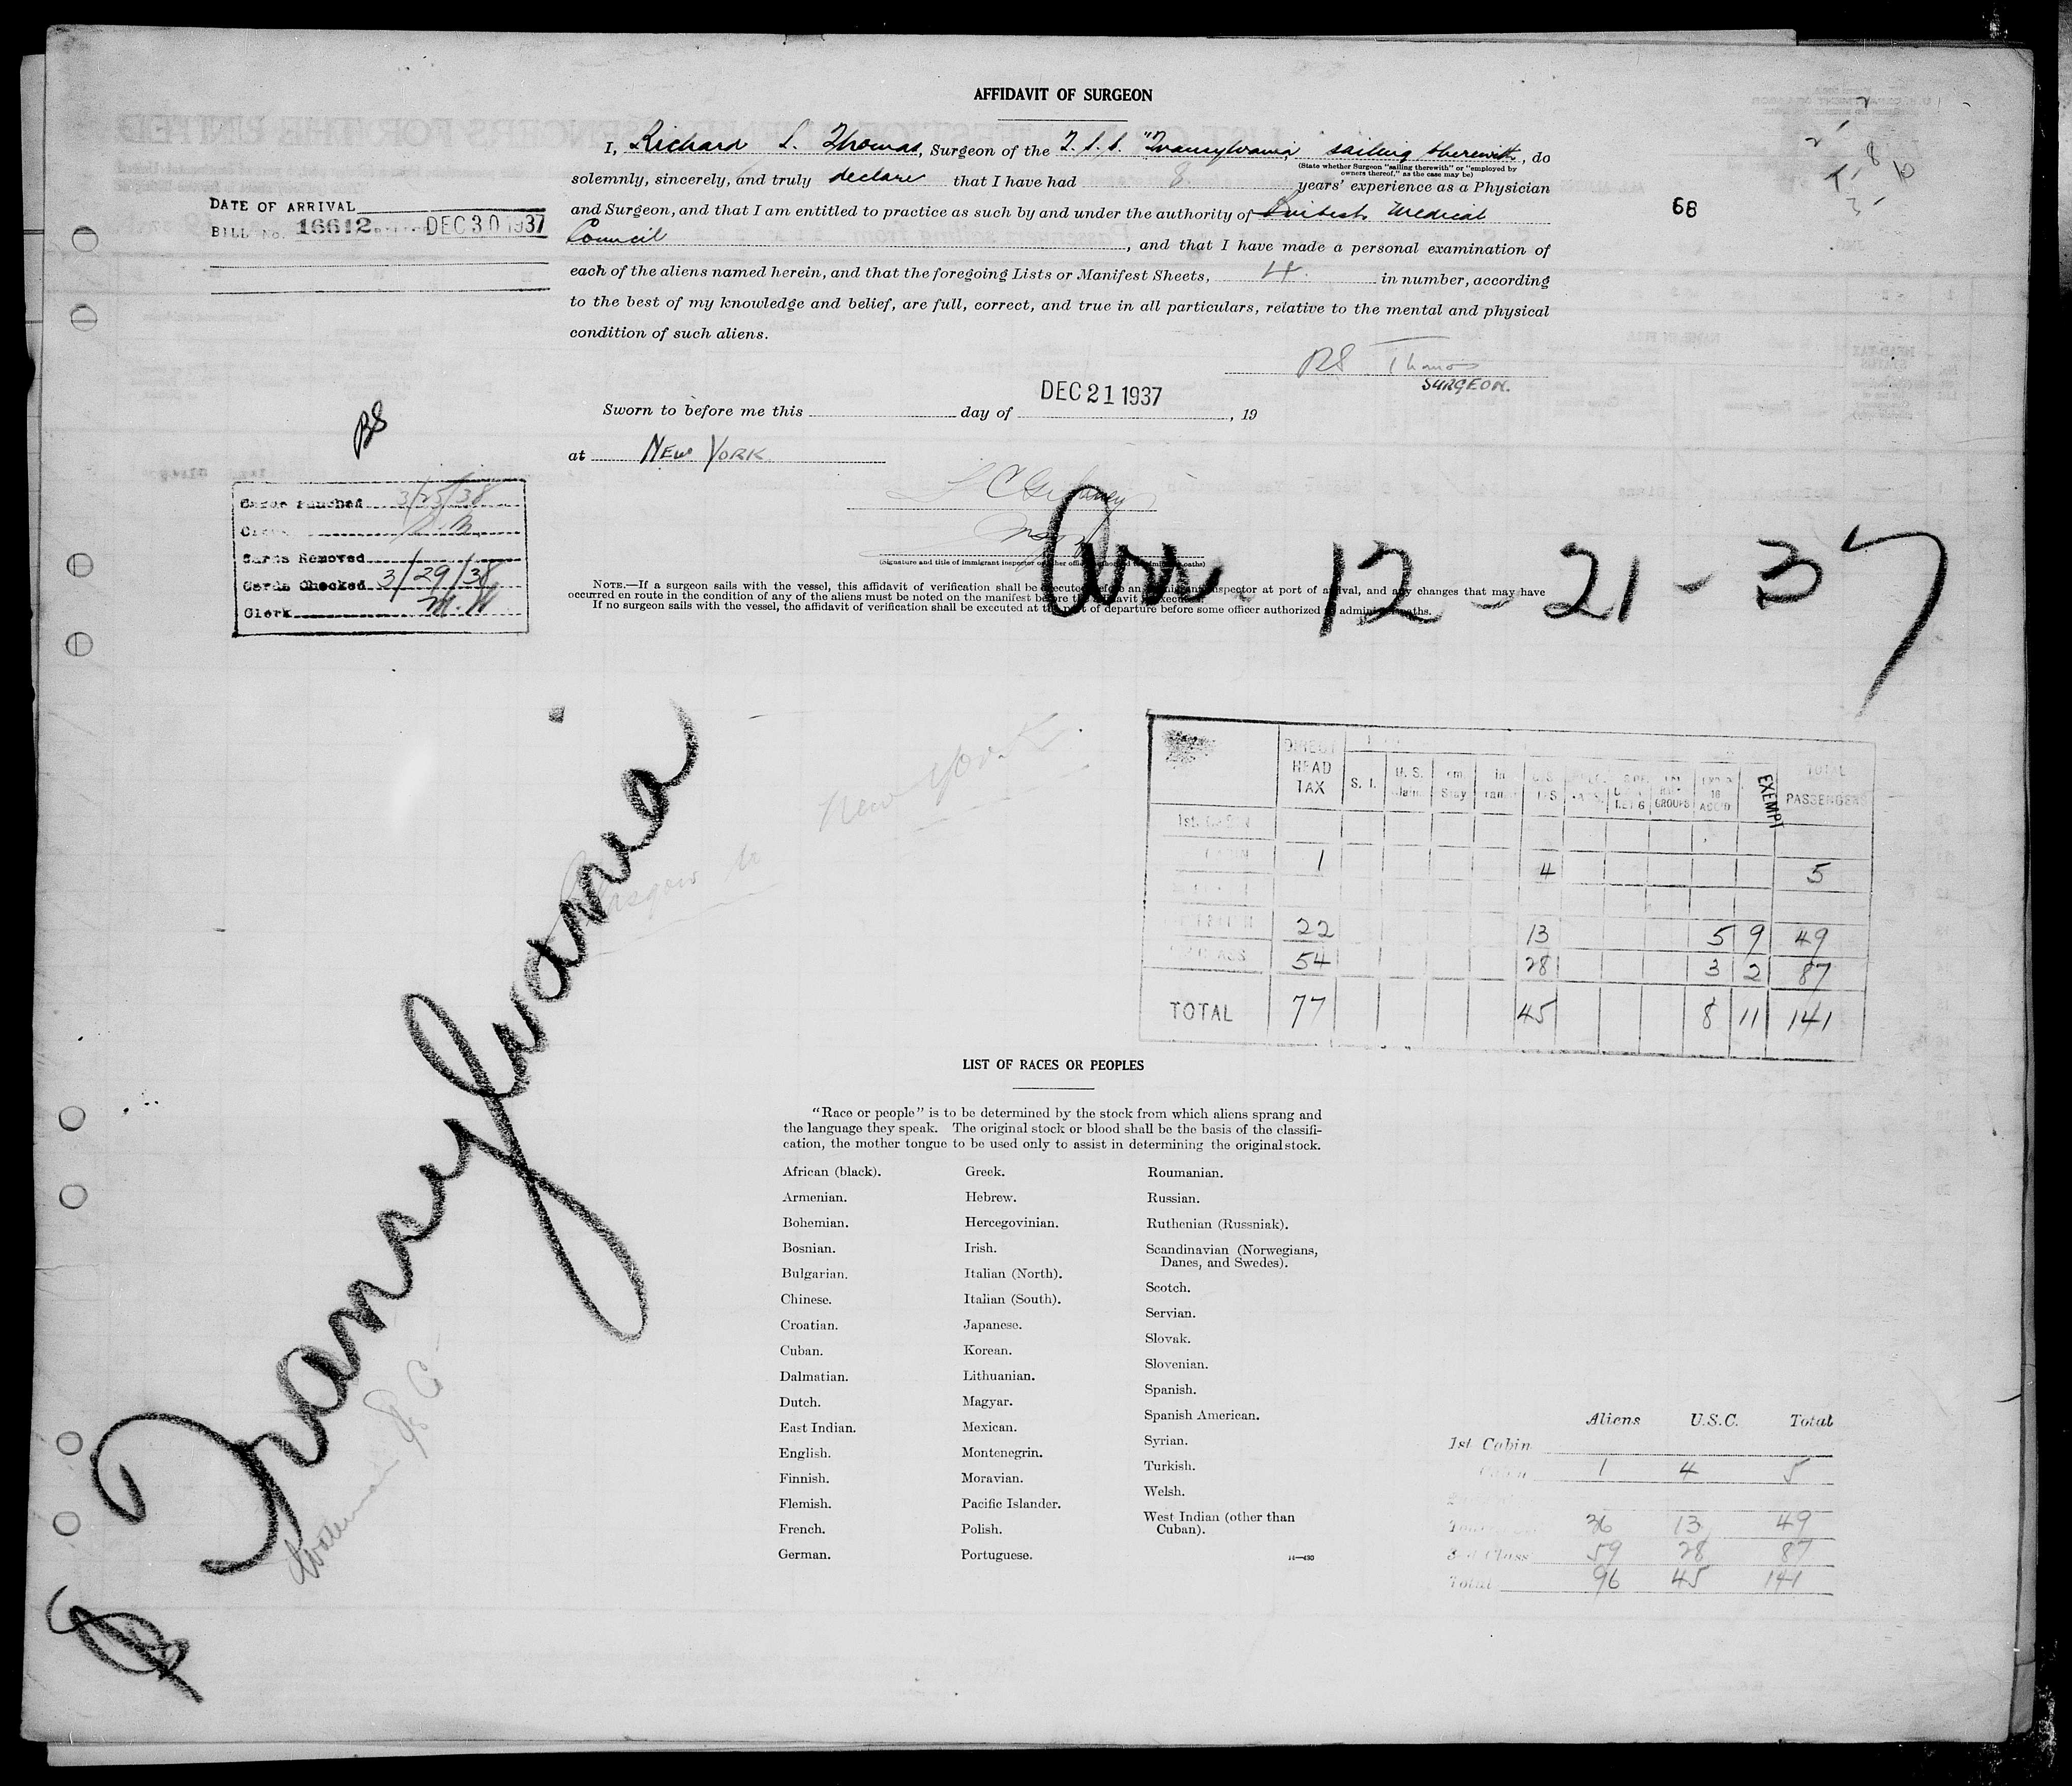 AFFIDAVIT OF SURGEON
I, Richard S. Thomas, Surgeon of the T.S.S. "Transylvania" sailing therewith, do
(State whether Surgeon "sailing therewith" or "employed by
owners thereof," as the case may be)
solemnly, sincerely, and truly declare that I have had 8 years' experience as a Physician
and Surgeon, and that I am entitled to practice as such by and under the authority of British Medical
Council, and that I have made a personal examination of
each of the aliens named herein, and that the foregoing Lists or Manifest Sheets, 4. in number, according
to the best of my knowledge and belief, are full, correct, and true in all particulars, relative to the mental and physical
condition of such aliens.
RS Thomas
SURGEON.
DATE OF ARRIVAL
BILL No. 16612 DEC 30 1937
66
Sworn to before me this day of DEC 21 1937, 19
at NEW YORK
(Signature and title of immigrant inspector or other officer authorized to administer oaths)
NOTE.—If a surgeon sails with the vessel, this affidavit of verification shall be executed before an immigrant inspector at port of arrival, and any changes that may have
occurred en route in the condition of any of the aliens must be noted on the manifest before the affidavit is executed.
If no surgeon sails with the vessel, the affidavit of verification shall be executed at the port of departure before some officer authorized to administer oaths.
Arr. 12-21-37
Cards Punched 3/25/38
Cards Removed
Cards Checked 3/29/38
Clerk M.W
Transylvania
Glasgow to
New York
DIRECT HEAD TAX S. I. U.S. EXEMPT TOTAL PASSENGERS
1st. CABIN
CABIN 1 4 5
22 13 5 9 49
CLASS 54 28 3 2 87
TOTAL 77 45 8 11 141
LIST OF RACES OR PEOPLES
"Race or people" is to be determined by the stock from which aliens sprang and
the language they speak. The original stock or blood shall be the basis of the classifi-
cation, the mother tongue to be used only to assist in determining the original stock.
African (black).
Armenian.
Bohemian.
Bosnian.
Bulgarian.
Chinese.
Croatian.
Cuban.
Dalmatian.
Dutch.
East Indian.
English.
Finnish.
Flemish.
French.
German.
Greek.
Hebrew.
Hercegovinian.
Irish.
Italian (North).
Italian (South).
Japanese.
Korean.
Lithuanian.
Magyar.
Mexican.
Montenegrin.
Moravian.
Pacific Islander.
Polish.
Portuguese.
Roumanian.
Russian.
Ruthenian (Russniak).
Scandinavian (Norwegians,
Danes, and Swedes).
Scotch.
Servian.
Slovak.
Slovenian.
Spanish.
Spanish American.
Syrian.
Turkish.
Welsh.
West Indian (other than
Cuban).
14—430
Aliens U.S.C. Total
1st Cabin
Cabin 1 4 5
36 13 49
3rd Class 59 28 87
Total 96 45 141